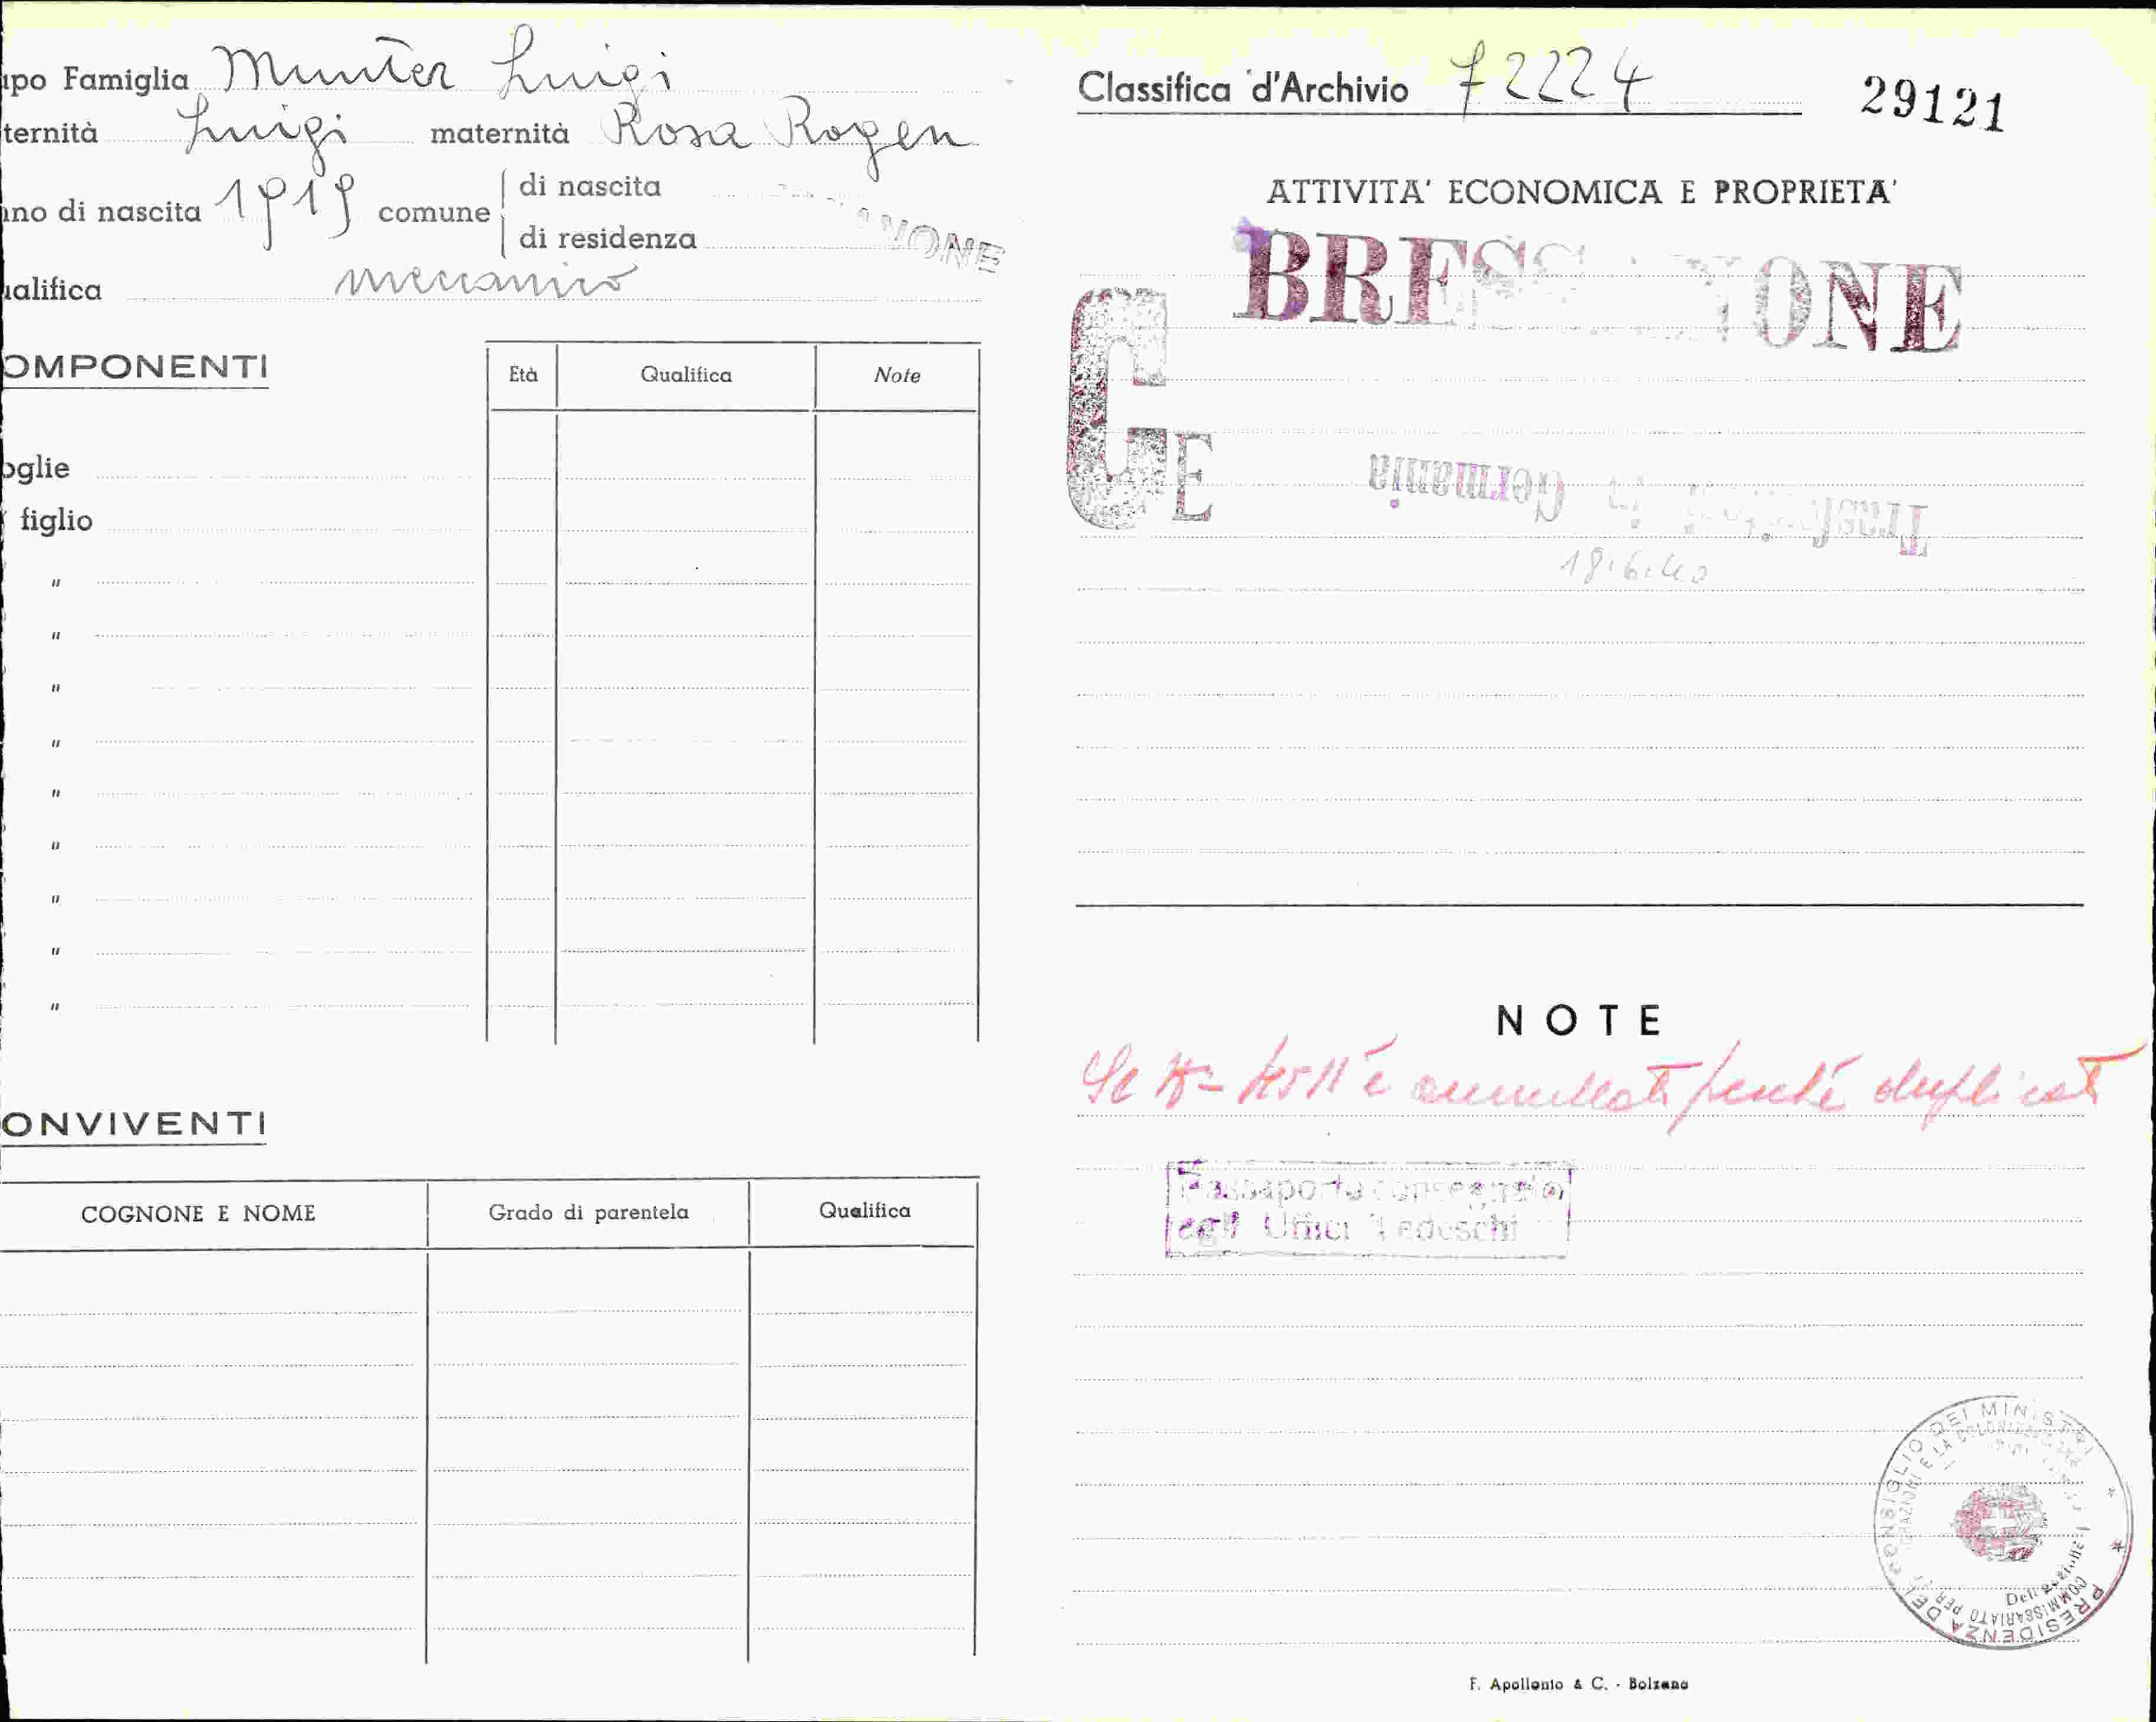 ipo Famiglia Munter Luigi
ternità Luigi maternità Rosa Rogen
nno di nascita 1919 comune di nascita
di residenza
alifica meccanico
OMPONENTI
Età Qualifica Note
oglie
figlio
"
"
"
"
"
"
"
"
"
ONVIVENTI
COGNONE E NOME Grado di parentela Qualifica
Classifica d'Archivio 72224 29121
ATTIVITA' ECONOMICA E PROPRIETA'
BRESSANONE
CE
Trasferitosi in Germania
18.6.40
NOTE
è annullato perché duplicato
Passaporto consegnato
agli Uffici Tedeschi
PRESIDENZA DEL CONSIGLIO DEI MINISTRI
COMMISSARIATO PER
E LA COLONIZZAZIONE
Delegazione
F. Apollonio & C. - Bolzano